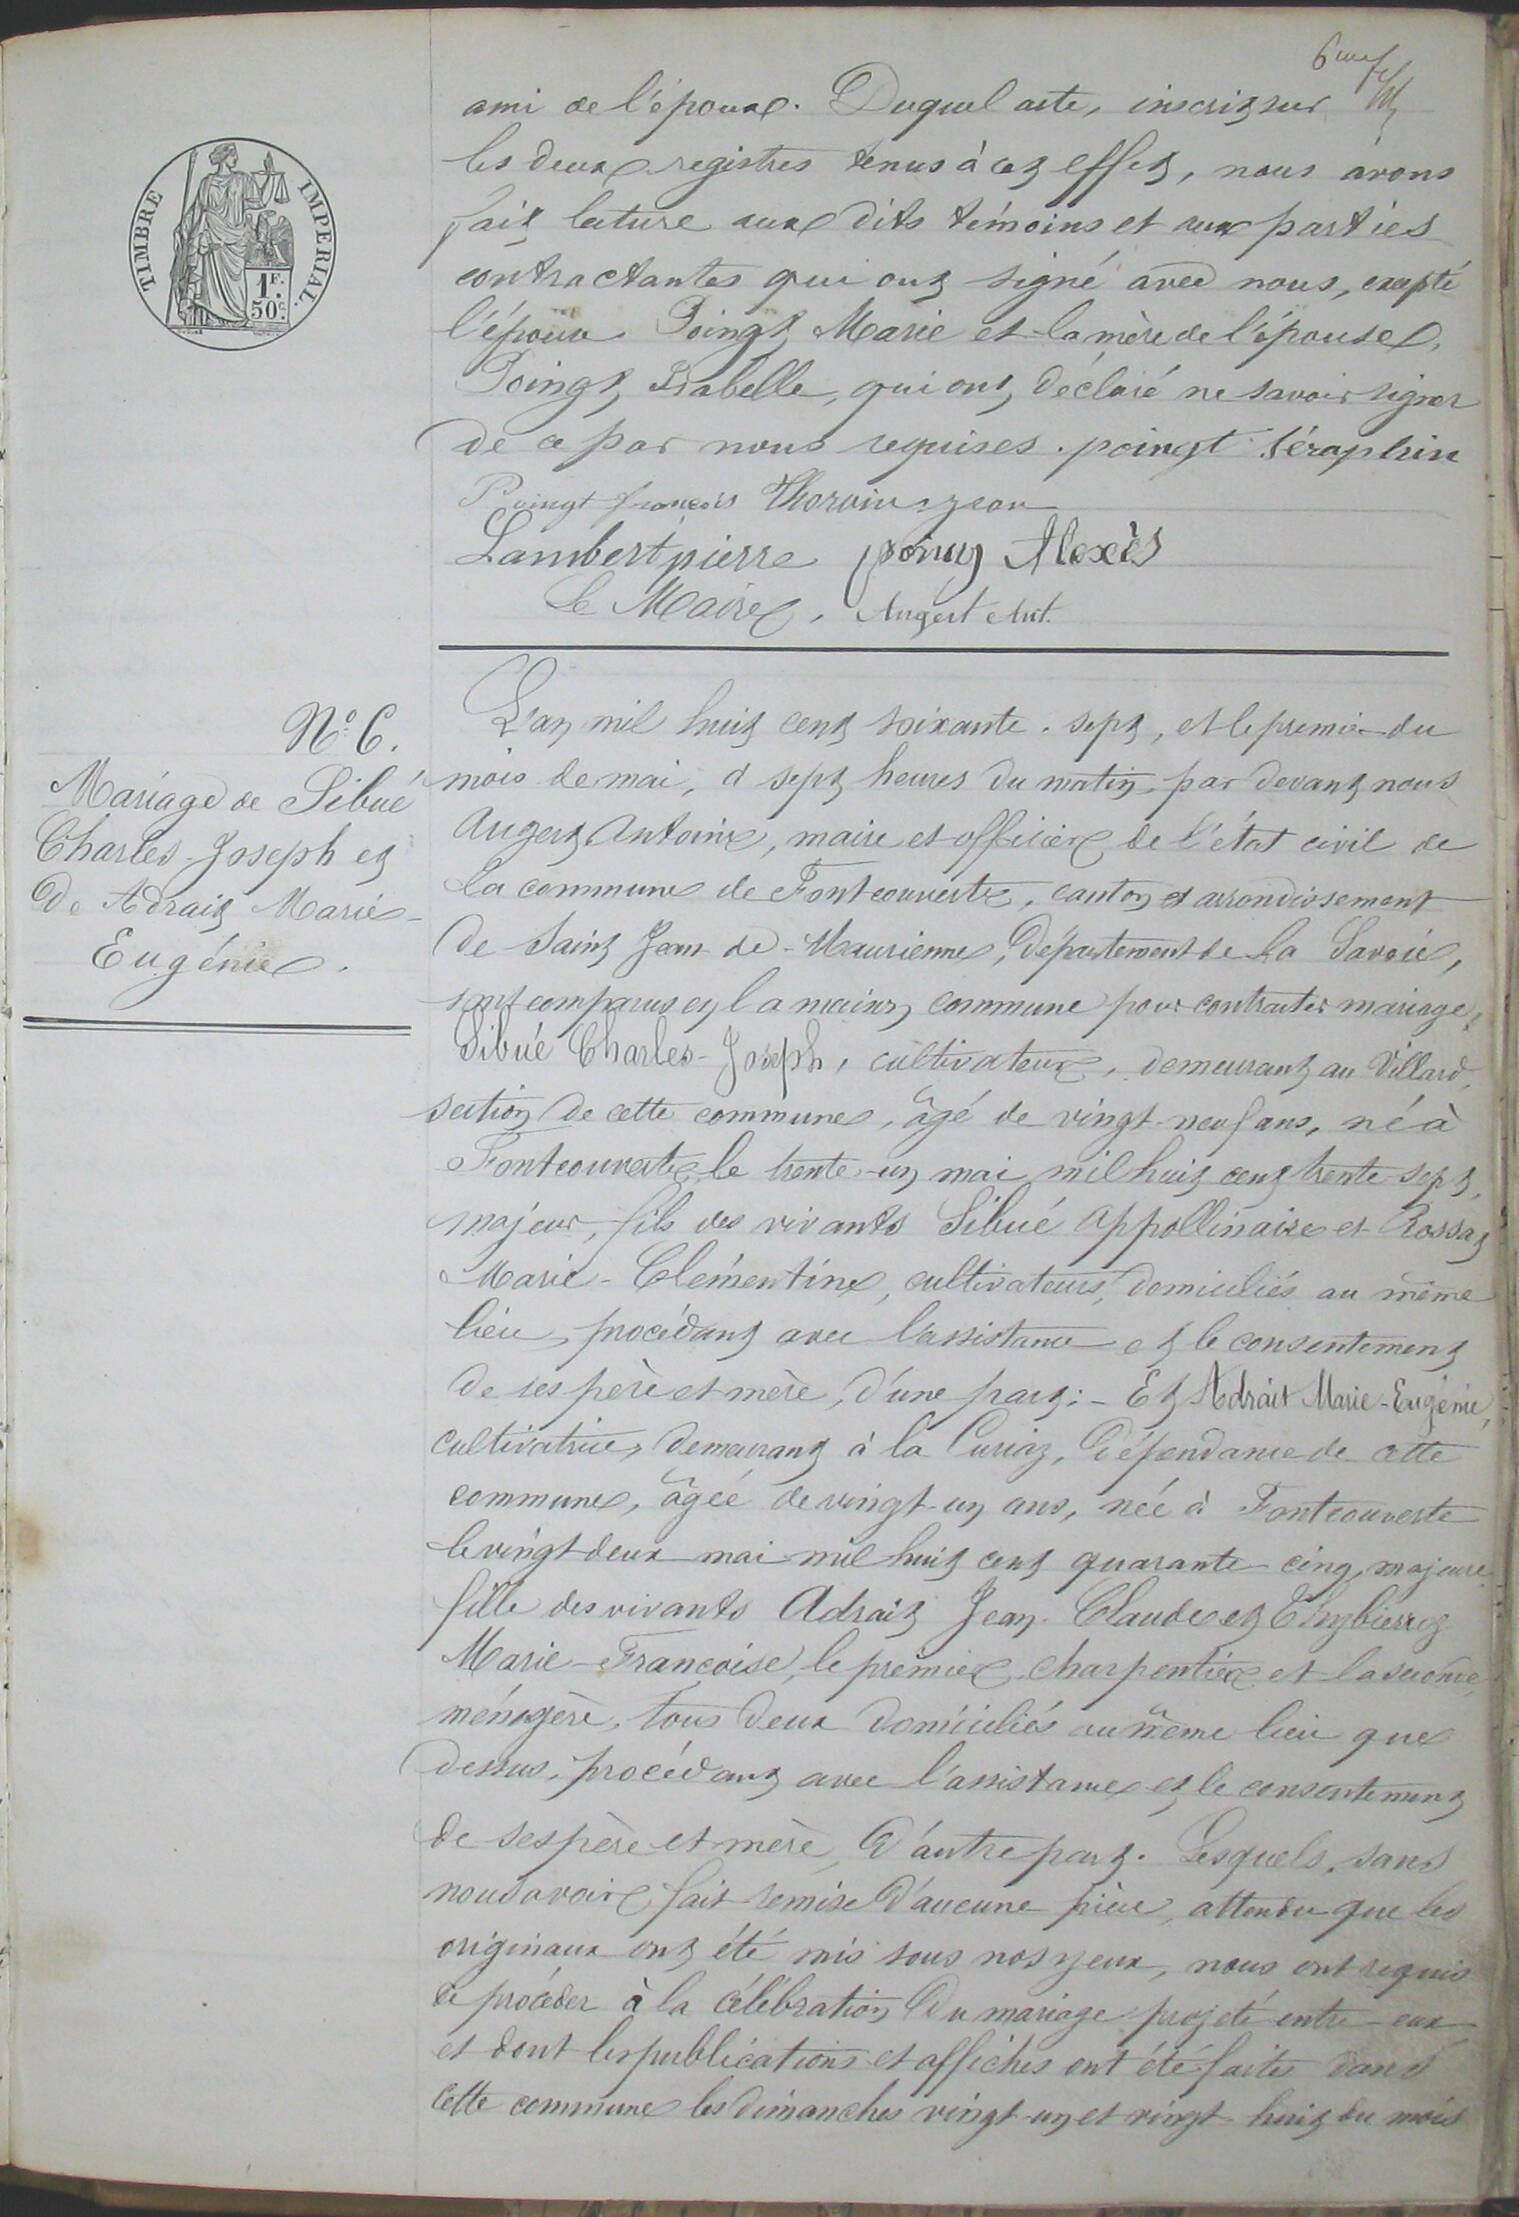 6me f
ami de l'époux. Duquel acte, inscrit sur
les deux registres tenus à cet effet, nous avons
fait lecture aux dits témoins et aux parties
contractantes qui ont signé avec nous, excepté
l'épouse Poingt Marie et la mère de l'épouse,
Poingt Isabelle, qui ont déclaré ne savoir signer
de ce par nous requises. poingt séraphin
Poingt françois Thorvin jean
Lambert pierre poingt Alexis
Le Maire, Augert Ant.
TIMBRE IMPERIAL.
1F.
50c.
N.o 6.
Mariage de Sibué
Charles-Joseph et
De Adrait Marie-
Eugénie.
L'an mil huit cent soixante-sept, et le premier du
mois de mai, à sept heures du matin, par devant nous
Augert Antoine, maire et officier de l'état civil de
la commune de Fontcouverte, canton et arrondissement
de Saint Jean-de-Maurienne, département de la Savoie,
sont comparus en la maison commune pour contracter mariage,
Sibué Charles-Joseph, cultivateur, demeurant au Villard,
section de cette commune, âgé de vingt-neuf ans, né à
Fontcouverte le trente-un mai mil huit cent trente-sept,
majeur, fils des vivants Sibué Appollinaire et Rossat
Marie-Clémentine, cultivateurs, domiciliés au même
lieu, procédant avec l'assistance et le consentement
de ses père et mère, d'une part;- Et Adrait Marie-Eugénie,
cultivatrice, demeurant à la Curiaz, dépendance de cette
commune, âgée de vingt-un ans, née à Fontcouverte
le vingt deux mai mil huit cent quarante-cinq, majeure
fille des vivants Adrait Jean-Claude et
Marie-Françoise, le premier charpentier et la seconde
ménagère, tous deux domiciliés au même lieu que
dessus, procédant avec l'assistance et le consentement
de ses père et mère, d'autre part. Lesquels, sans
nous avoir fait remise d'aucune pièce, attendu que les
originaux ont été mis sous nos yeux, nous ont requis
de procéder à la célébration du mariage projeté entre eux
et dont les publications et affiches ont été faites dans
cette commune les dimanches vingt-un et vingt-huit du mois